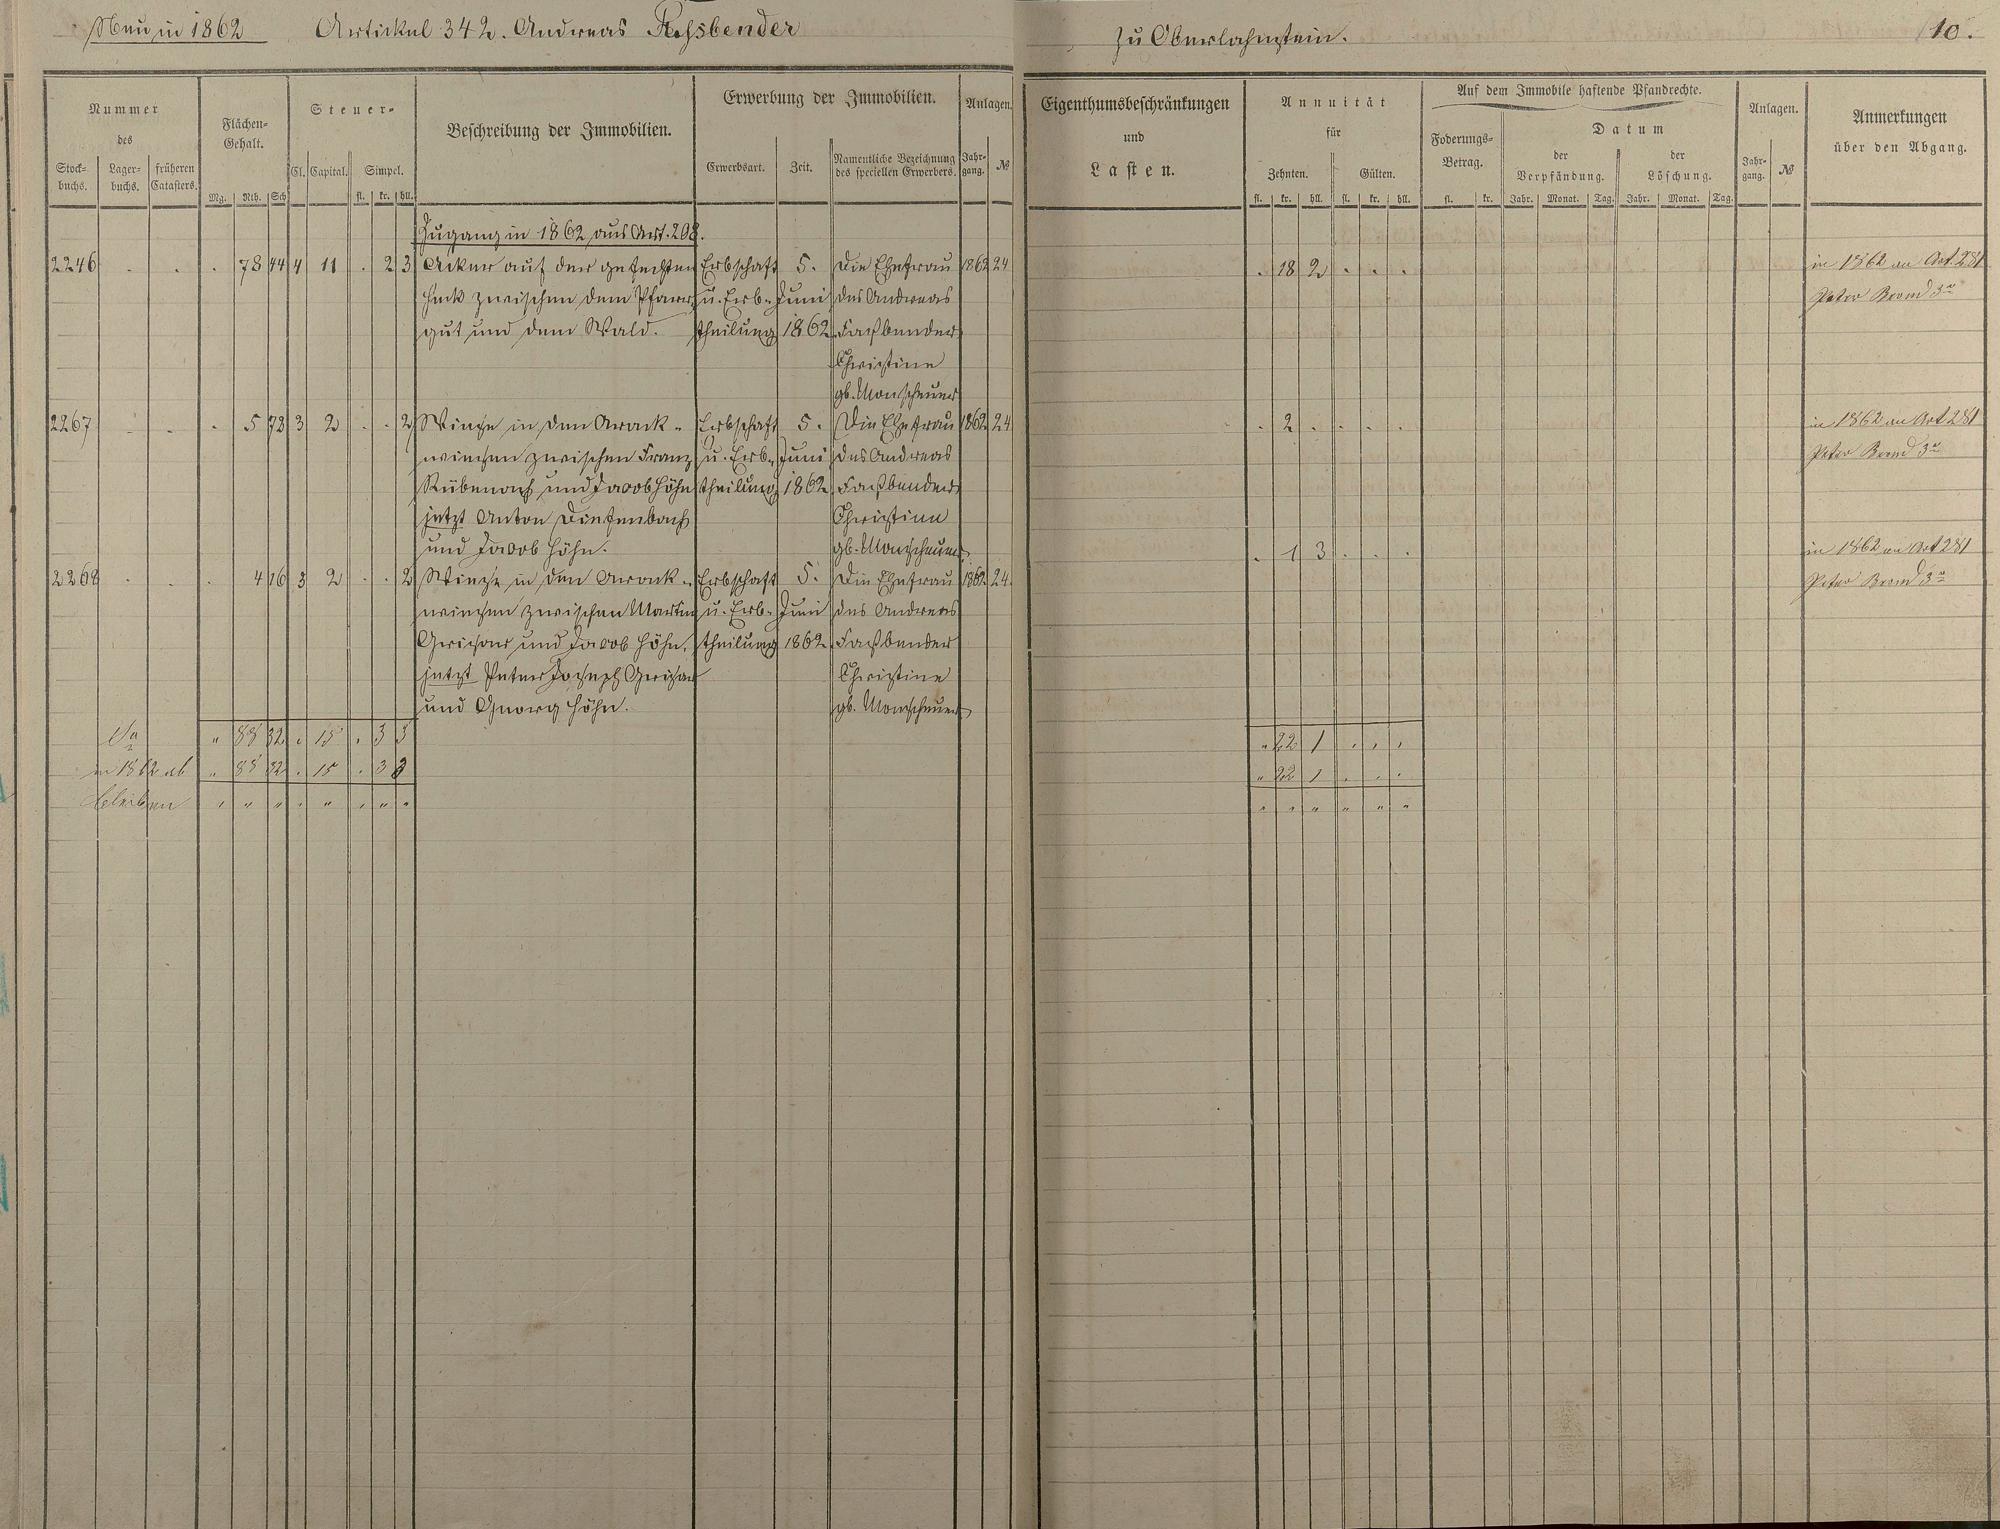 Neu in 1862 Artickel 342. Andreas Fassbender zu Oberlahnstein. 10.
Nummer des
Stock-buchs. Lager-buchs. früheren Catasters.
Flächen-Gehalt.
Mg. Rth. Sch
Steuer-
Cl. Capital. Simpel.
fl. kr. hll.
Beschreibung der Immobilien.
Erwerbung der Immobilien.
Erwerbsart. Zeit. Namentliche Bezeichnung des speciellen Erwerbers.
Anlagen.
Jahr-gang. №
Eigenthumsbeschränkungen
und
Lasten.
Annuität
für
Zehnten. Gülten.
fl. kr. hll. fl. kr. hll.
Auf dem Immobile haftende Pfandrechte.
Foderungs-Betrag.
fl. kr.
Datum
der Verpfändung. der Löschung.
Jahr. Monat. Tag. Jahr. Monat. Tag.
Anlagen.
Jahr-gang. №
Anmerkungen
über den Abgang.
Zugang in 1862 aus Art. 208.
2246 . . . 78 44 4 11 . 2 3 Acker auf der Erbschaft 5. Die Ehefrau 1862 24 . 18 2 . . . in 1862 an Art. 281
Heck zwischen dem Pfarr- u. Erb- Juni des Andreas Peter 3r
gut und dem Wald. theilung 1862 Faßbender
Christine
gb. Monscheuer
2267 . . . 5 73 3 2 . . 2 Wiese in den Erbschaft 5. Die Ehefrau 1862 24 . 2 . . . . in 1862 an Art 281
zwischen Franz u. Erb- Juni des Andreas Peter 3r
Rübenach und Jacob Höhn theilung 1862 Faßbender
jetzt Anton Diefenbach Christine
und Jacob Höhn. gb. Monscheuer
. 1 3 . . . in 1862 an Art 281
2268 . . . 4 16 3 2 . . 2 Wiese in den Erbschaft 5. Die Ehefrau 1862 24. Peter 3r
zwischen Martin u. Erb- Juni des Andreas
und Jacob Höhn, theilung 1862 Faßbender
jetzt Peter Joseph Christine
und Georg Höhn. gb. Monscheuer
Sa „ 88 32 . 15 . 3 3 „ 22 1 . . .
in 1862 ab „ 88 32 . 15 . 3 3 „ 22 1 . . .
bleiben „ „ „ „ „ „ „ „ „ „ „ „ „ „